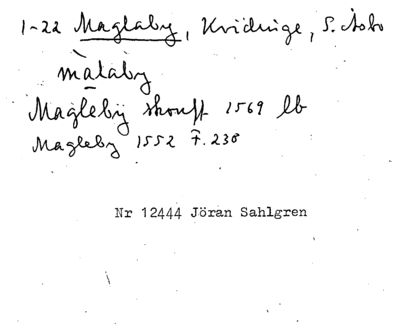 1-22 Maglaby, Kvidinge, S. Åsbo
màlaby
Magleby skouff 1569 lb
Magleby 1552 F. 238
Nr 12444 Jöran Sahlgren